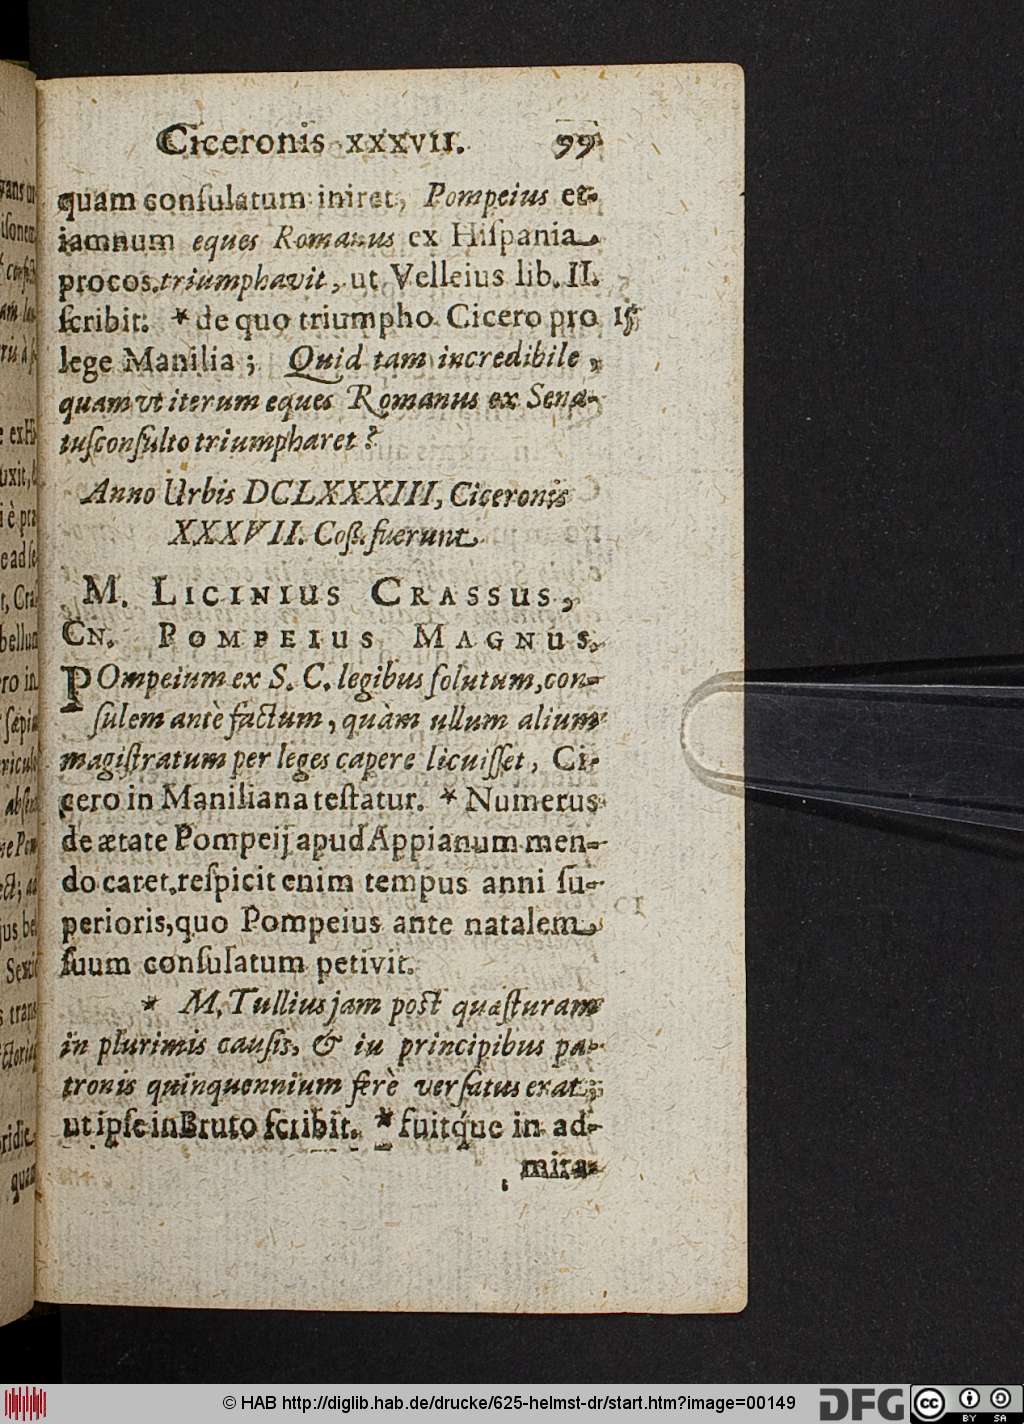 Ciceronis XXXVII. 99
quam conſulatum iniret, Pompeius et-
iamnum eques Romanus ex Hiſpania
procos. triumphavit, ut Velleius lib. II.
ſcribit. * de quo triumpho Cicero pro 15
lege Manilia; Quid tam incredibile,
quam vt iterum eques Romanus ex Sena-
tuſconſulto triumpharet?
Anno Urbis DCLXXXIII, Ciceronis
XXXVII. Coſſ. fuerunt
M. LICINIUS CRASSUS,
CN. POMPEIUS MAGNUS.
POmpeium ex S. C. legibus ſolutum, con-
ſulem antè factum, quàm ullum alium
magiſtratum per leges capere licuiſſet, Ci-
cero in Maniliana teſtatur. * Numerus
de ætate Pompeij apud Appianum men-
do caret. reſpicit enim tempus anni ſu-
perioris, quo Pompeius ante natalem
ſuum conſulatum petivit.
* M. Tullius jam poſt quæſturam
in plurimis cauſis, & iu principibus pa-
tronis quinquennium ferè verſatus erat,
ut ipſe in Bruto ſcribit. * fuitq́ue in ad-
mira-
© HAB http://diglib.hab.de/drucke/625-helmst-dr/start.htm?image=00149
DFG
cc
BY SA